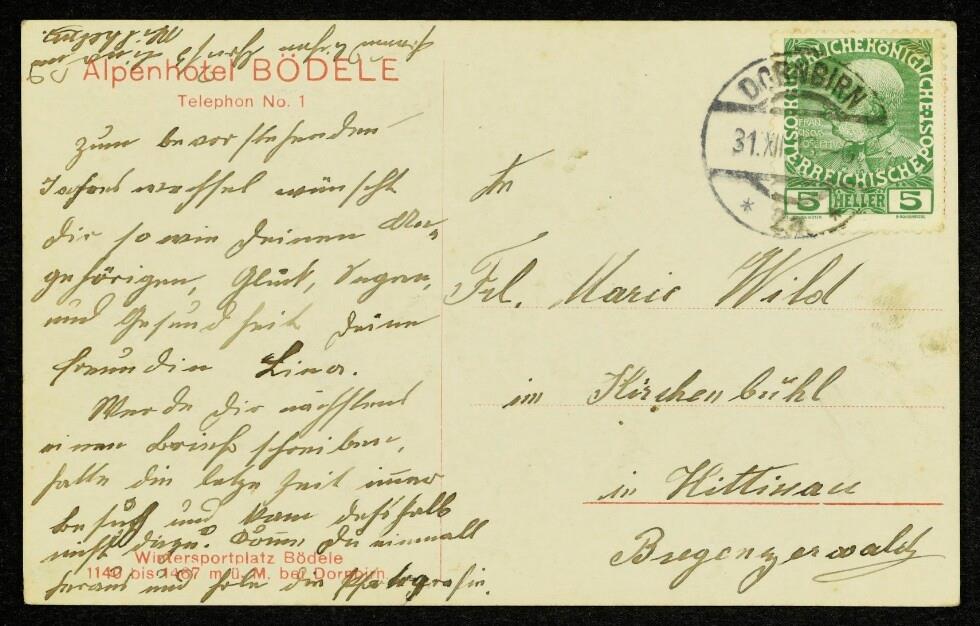 Alpenhotel BÖDELE
Telephon No. 1
zum bevorstehenden
Jahreswechsel wünscht
dir sowie deinen An-
gehörigen, Glück, Segen,
und Gesundheit deine
Freundin Lina.
Werde dir nächstens
einen Brief schreiben,
hatte die letze Zeit immer
besuch und kam deßhalb
nicht dazu. Komm du einmall
heraus und hole die Photografie.
Wintersportplatz Bödele
1140 bis 1467 m ü. M. bei Dornbirn
DORNBIRN
31.XII
* 2a *
KAISERLICHE KÖNIGLICHE ÖSTERREICHISCHE POST
5 HELLER 5
An
Frl. Marie Wild
im Kirchenbühl
in Hittisau
Bregenzerwald